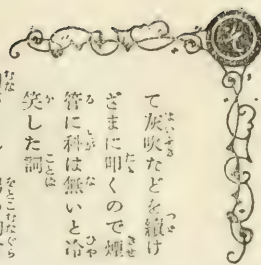 そ
て灰吹などを續け
ざまに叩くので煙
管に科は無いと冷
笑した詞